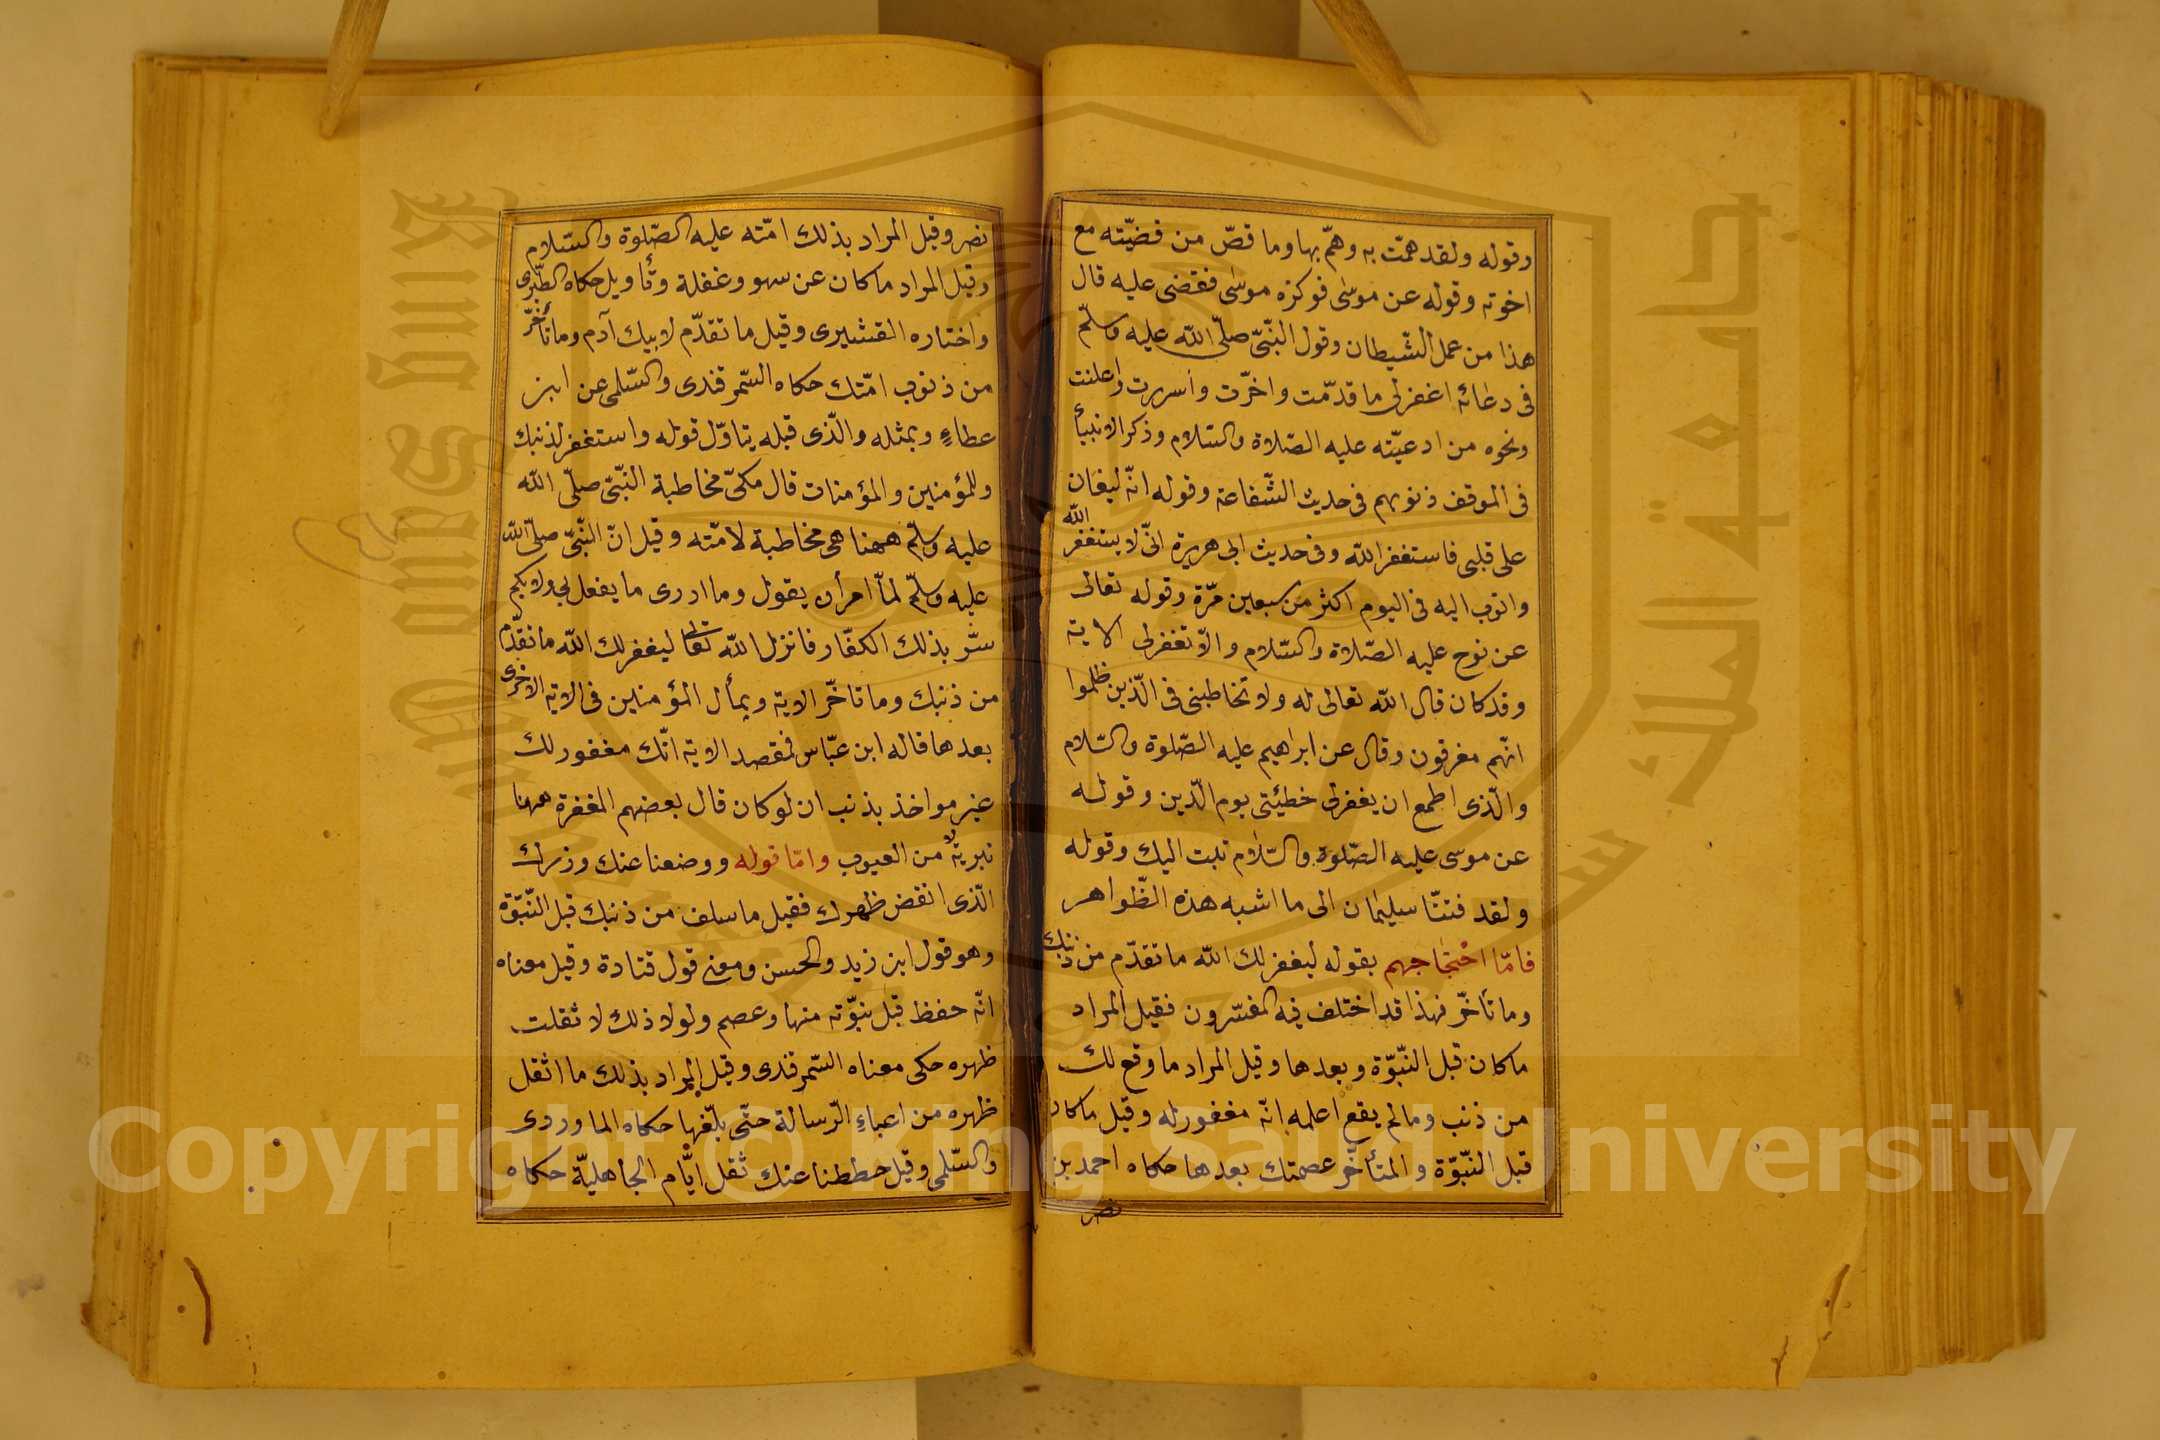 وقوله ولقد همّت به وهمّ بها وما قصّ من قصّيته مع
اخوته وقوله عن موسى فوكزه موسى فقضى عليه قال
هذا من عمل الشّيطان وقول النّبيّ صلّى الله عليه وسلّم
فى دعائه اغفرلى ما قدّمت واخّرت واسررت واعلنت
ونحوه من ادعيّته عليه الصّلاة والسّلام وذكر الانبيأ
فى الموقف ذنوبهم فى حديث الشّفاعة وقوله انّه ليغان
على قلبى فاستغفر الله وفى حديث ابى هريرة انّى لا يستغفر الله
واتوب اليه فى اليوم اكثر من سبعين مرّة وقوله تعالى
عن نوح عليه الصّلاة والسّلام والاّ تغفرلى الاية
وقد كان قال الله تعالى له ولا تخاطبنى فى الّذين ظلموا
انّهم مغرقون وقال عن ابراهيم عليه الصّلوة والسّلام
والّذى اطمع ان يغفرلى خطيئتى يوم الدّين وقوله
عن موسى عليه الصّلوة والسّلام تبت اليك وقوله
ولقد فتنّا سليمان الى ما اشبه هذه الظّواهر
فامّا احتجاجهم بقوله ليغفرلك الله ما تقدّم من ذنبك
وما تأخّر فهذا قد اختلف فيه المفسّرون فقيل المراد
ما كان قبل النّبوّة وبعدها وقيل المراد ما وقع لك
من ذنب وما لم يقع اعلمه انّه مغفورله وقيل ما كان
قبل النّبوّة والمتأخّر عصمتك بعدها حكاه احمد بن
نصر
نصر وقيل المراد بذلك امّته عليه الصّلوة والسّلام
وقيل المراد ما كان عن سهو وغفلة وتأويل حكاه الطّبرى
واختاره القشيرى وقيل ما تقدّم لابيك آدم وما تأخّر
من ذنوب امّتك حكاه السّمرقندى والسّلمى عن ابن
عطاءٍ وبمثله والّذى قبله يتاوّل قوله واستغفر لذنبك
وللمؤمنين والمؤمنات قال مكّى مخاطبة النّبىّ صلّى الله
عليه وسلّم ههنا هى مخاطبة لامّته وقيل انّ النّبىّ صلّى الله
عليه وسلّم لمّا امر أن يقول وما ادرى ما يفعل بى ولا بكم
سرّ بذلك الكفّار فانزل الله تعالى ليغفرلك الله ما تقدّم
من ذنبك وما تاخّر الاية وبمأل المؤمنين فى الاية الاخرى
بعدها قاله ابن عبّاس فمقصد الاية انّك مغفور لك
غير مواخذ بذنب ان لو كان قال بعضهم المغفرة ههنا
تبرية من العيوب وامّا قوله ووضعنا عنك وزرك
الّذى انقض ظهرك فقيل ما سلف من ذنبك قبل النّبوّة
وهو قول ابن زيد والحسن ومعنى قول قتادة وقيل معناه
انّه حفظ قبل نبوّته منها وعصم ولولا ذلك لاثقلت
ظهره حكى معناه السّمرقندى وقيل المراد بذلك ما اثقل
ظهره من اعباءِ الرّسالة حتّى بلّغها حكاه الماوردى
والسّلمى وقيل حططنا عنك ثقل ايّام الجاهليّة حكاه
جامعة الملك سعود
King Saud University
1957
Copyright © King Saud University